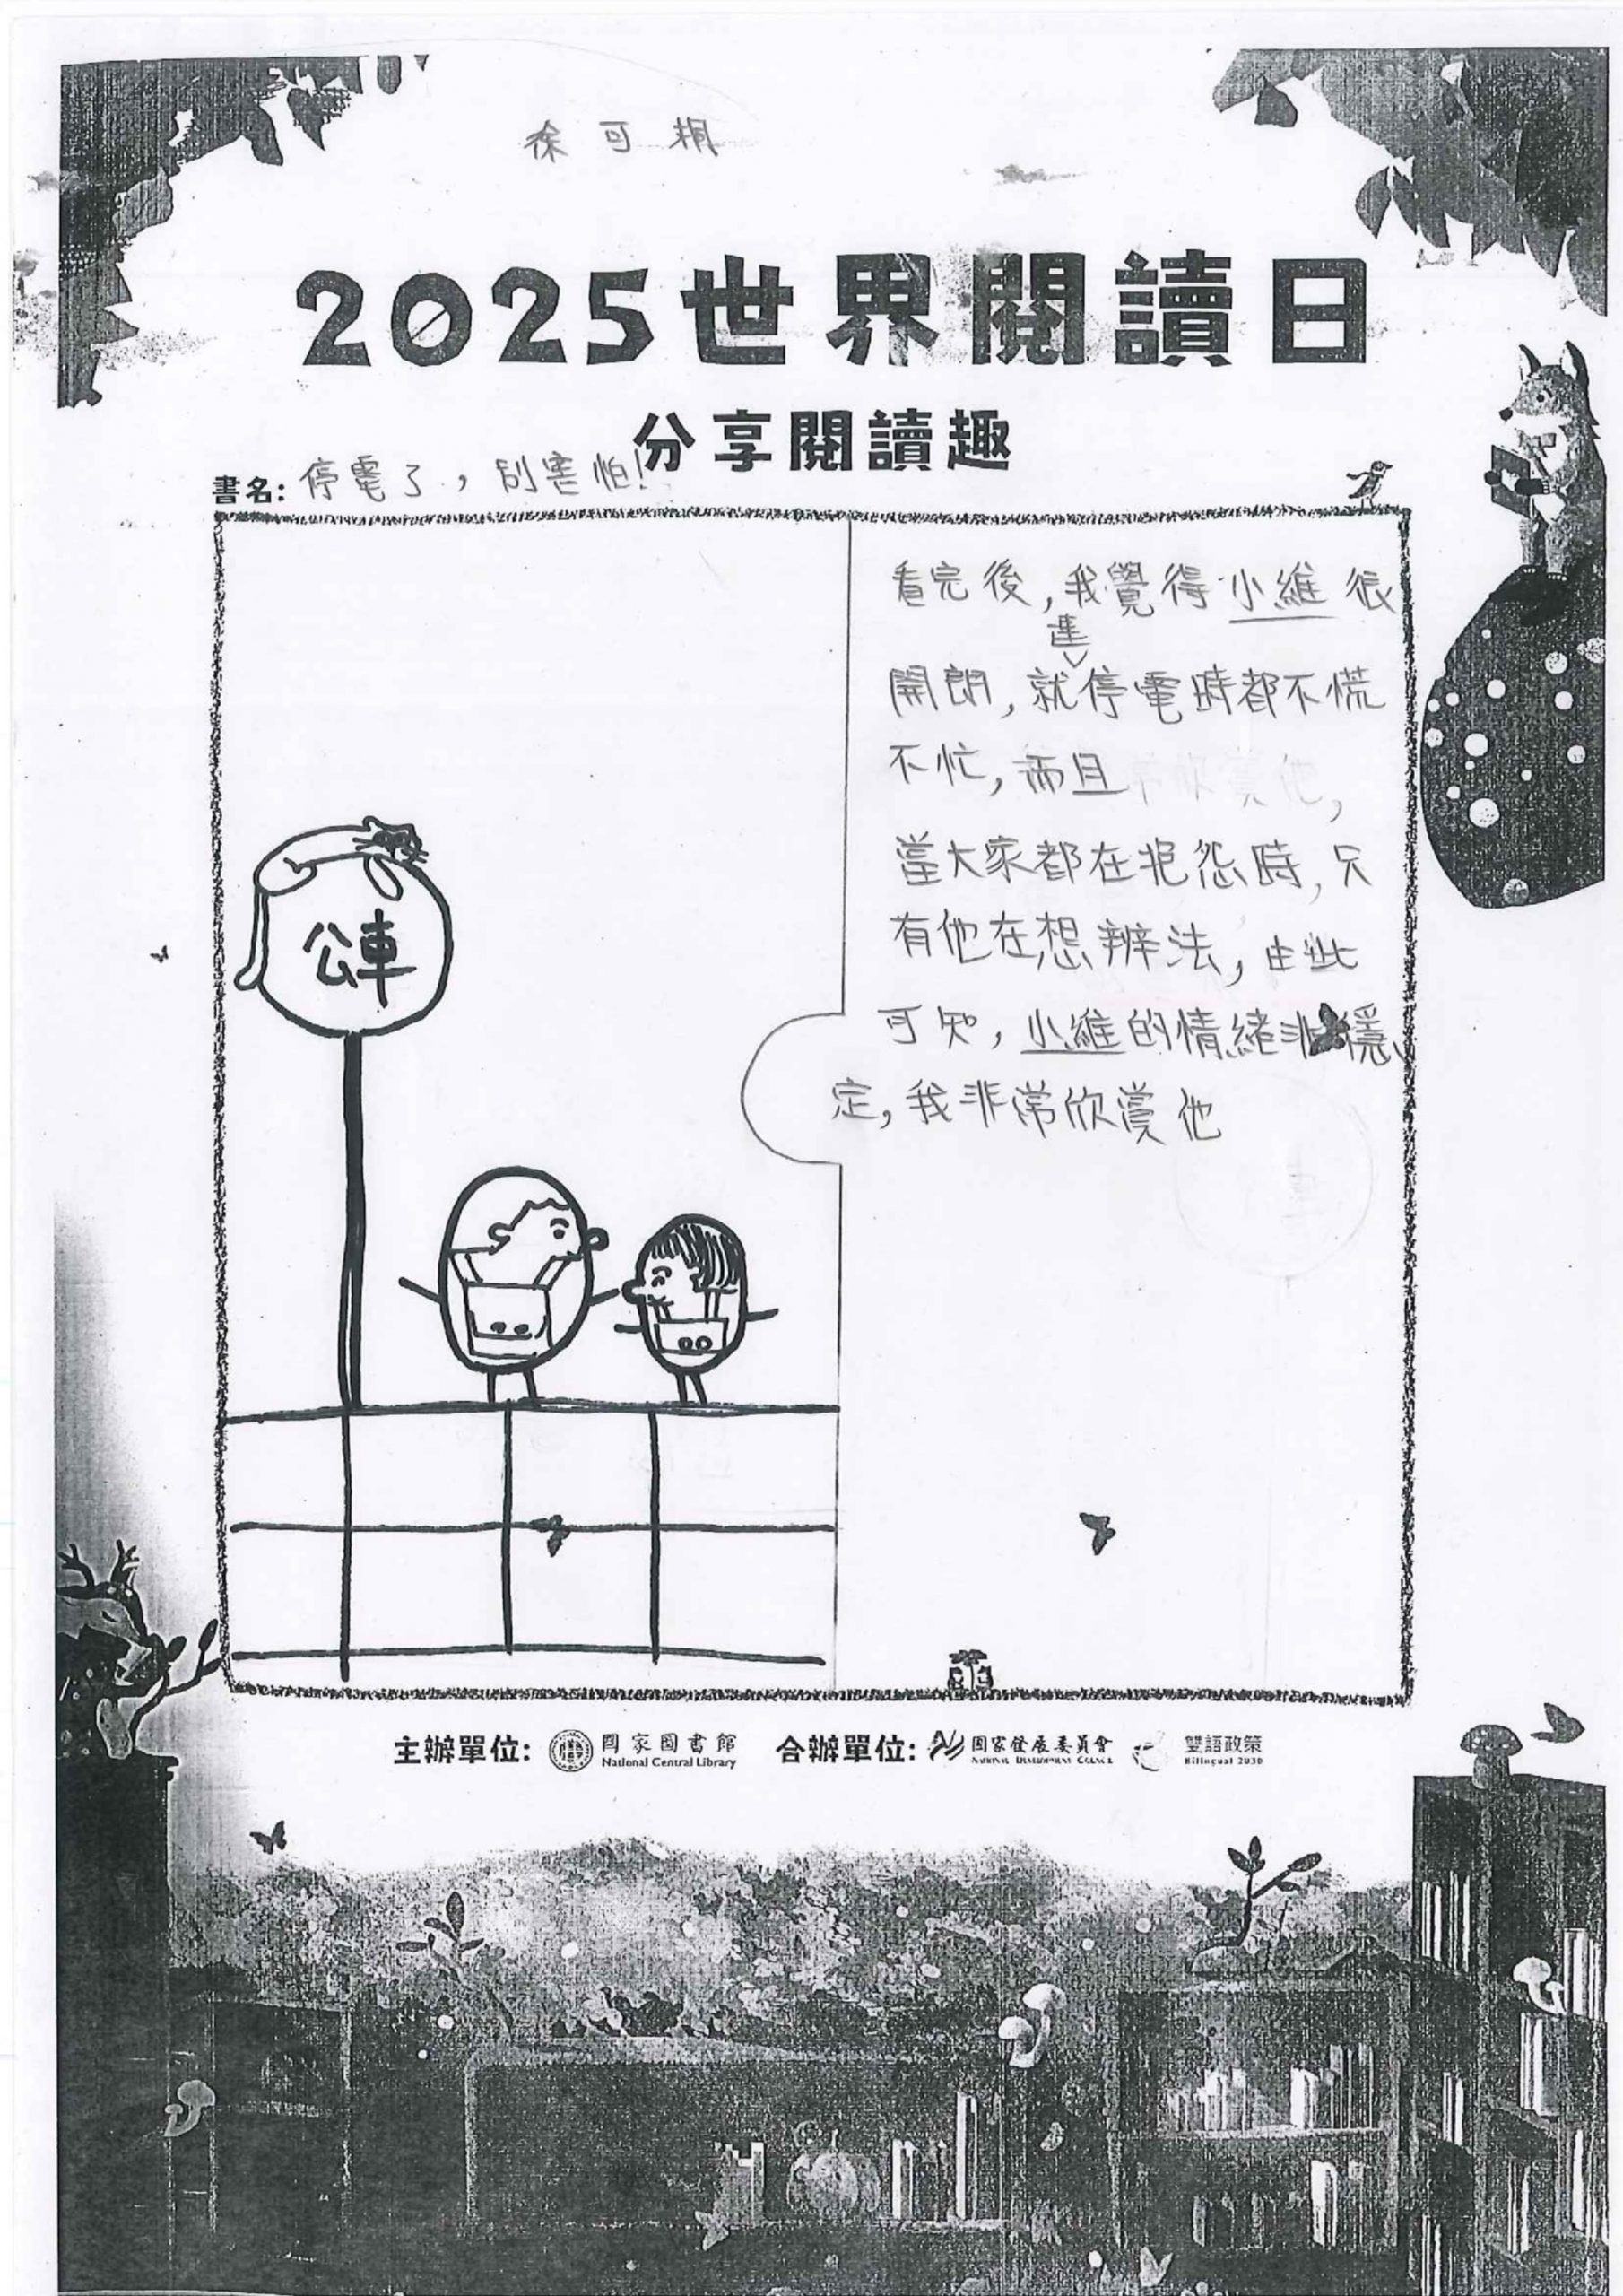 徐可桐
2025世界閱讀日
分享閱讀趣
書名: 停電了，別害怕!
看完後,我覺得小維很
開朗,就連停電時都不慌
不忙,而且
當大家都在抱怨時,只
有他在想辦法,由此
可知,小維的情緒非穩
定,我非常欣賞他
公車
主辦單位: 國家圖書館 National Central Library 合辦單位: 國家發展委員會 NATIONAL DEVELOPMENT COUNCIL 雙語政策 Bilingual 2030